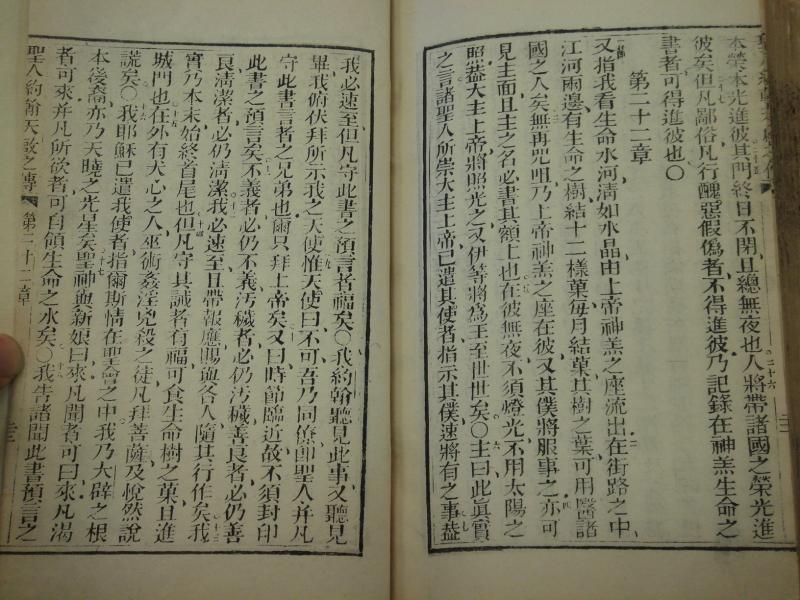 本榮本光進彼其門終日不閉且總無夜也二十六人將帶諸國之榮光進
彼矣但凡鄙俗凡行醜惡假僞者不得進彼乃記錄在神羔生命之
書者可得進彼也〇
第二十二章
又指我看生命水河清如水晶由上帝神羔之座流出二在街路之中
江河兩邊有生命之樹結十二樣菓每月結菓其樹之葉可用醫諸
國之人矣無再咒咀乃上帝神羔之座在彼又其僕將服事之亦可四
見主面且主之名必書其額上也在彼無夜不須燈光不用太陽之
照葢大主上帝將照光之又伊等將爲王至世世矣〇六主曰此眞實
之言諸聖人所崇大主上帝已遣其使者指示其僕速將有之事葢七
我必速至但凡守此書之預言者福矣〇我約翰聽見此事又聽見
畢我俯伏拜所示我之天使九惟天使曰不可吾乃同僚卽聖人幷凡
守此書言者之兄弟也爾只拜上帝矣十又曰時節臨近故不須封印
此書之預言矣不義者必仍不義污穢者必仍污穢善良者必仍善
良清潔者必仍清潔十二我必速至且帶報應賜與各人隨其行作矣十三我
實乃本末始終首尾也十四但凡守其誡者有福可食生命樹之菓且進
城門也十五在外有犬心之人巫術姦淫兇殺之徒凡拜菩薩及悅然說
謊矣〇十六我耶穌已遣我使者指爾斯情在聖會之中我乃大辟之根
本後裔亦乃天曉之光星矣十七聖神與新娘曰來凡聞者可曰來凡渴
者可來幷凡所欲者可白領生命之水矣〇十八我告諸聞此書預言之
聖人約翰天啟之傳 第二十二章